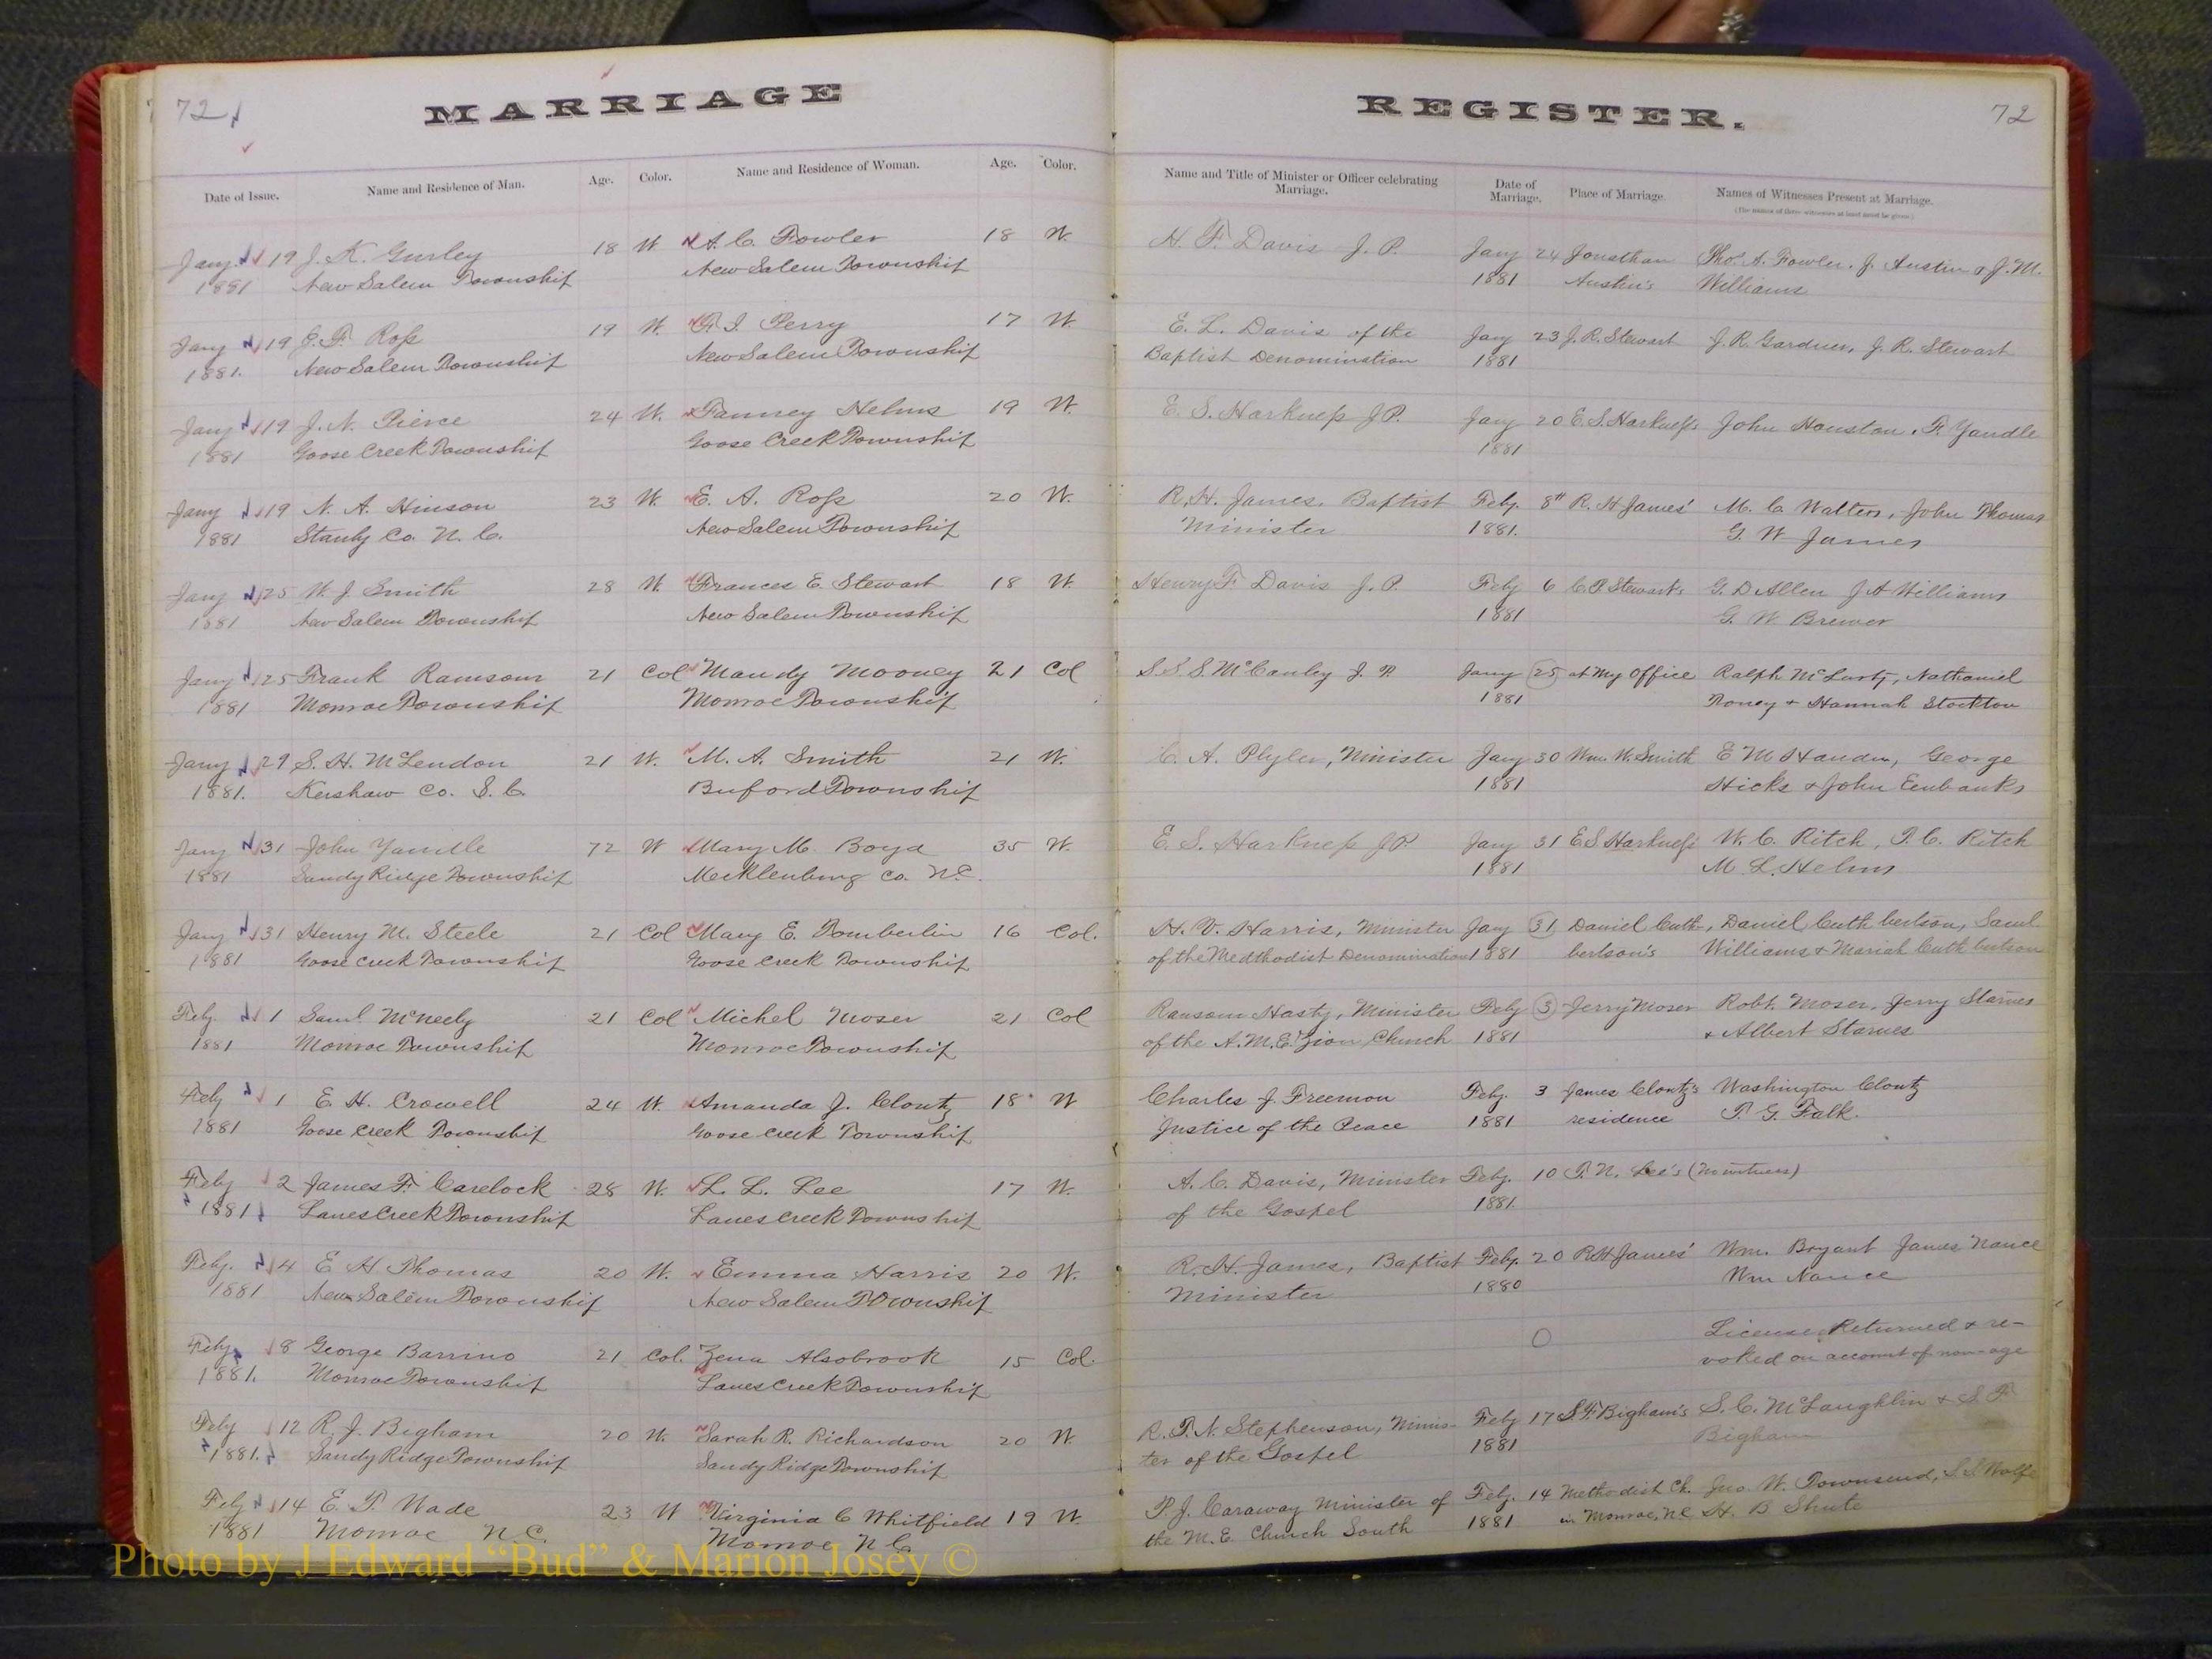 72
MARRIAGE
Date of Issue.
Name and Residence of Man.
Age.
Color.
Name and Residence of Woman.
Age.
Color.
Jany 19 J. K. Gurley 18 W. A. C. Fowler 18 W.
1881 New Salem Township New Salem Township
Jany 19 J. F. Ross 19 W. Perry 17 W.
1881. New Salem Township New Salem Township
Jany 19 J. N. Pierce 24 W. Fanney Helms 19 W.
1881 Goose Creek Township Goose Creek Township
Jany 19 N. A. Hinson 23 W. E. A. Ross 20 W.
1881 Stanly Co. N. C. New Salem Township
Jany 25 W. J. Smith 28 W. Frances E. Stewart 18 W.
1881 New Salem Township New Salem Township
Jany 25 Frank Ramsom 21 Col Mandy Mooney 21 Col
1881 Monroe Township Monroe Township
Jany 29 S. H. McLendon 21 W. M. A. Smith 21 W.
1881. Kershaw Co. S. C. Buford Township
Jany 31 John Yandle 72 W Mary M. Boyd 35 W.
1881 Sandy Ridge Township Mecklenburg Co. N.C.
Jany 31 Henry M. Steele 21 Col Mary E. Tomberlin 16 Col.
1881 Goose Creek Township Goose Creek Township
Feby. 1 Saml. McNeely 21 Col Michel Moser 21 Col
1881 Monroe Township Monroe Township
Feby 1 E. H. Crowell 24 W. Amanda J. Clontz 18 W
1881 Goose Creek Township Goose Creek Township
Feby 2 James F. Carelock 28 W. L. L. Lee 17 W.
1881 Lanes Creek Township Lanes Creek Township
Feby. 4 E H Thomas 20 W. Emma Harris 20 W.
1881 New Salem Township New Salem Township
Feby 8 George Barrino 21 Col. Zena Alsobrook 15 Col.
1881. Monroe Township Lanes Creek Township
Feby 12 R. J. Bigham 20 W. Sarah R. Richardson 20 W.
1881. Sandy Ridge Township Sandy Ridge Township
Feby 14 E. T. Wade 23 W Virginia C Whitfield 19 W.
1881 Monroe N C. Monroe N C
REGISTER.
72
Name and Title of Minister or Officer celebrating
Marriage.
Date of
Marriage.
Place of Marriage.
Names of Witnesses Present at Marriage.
(The names of three witnesses at least must be given.)
H. F. Davis J. P. Jany 24 Jonathan Tho. A. Fowler. J. Austin & J. M.
1881 Austin's Williams
E. L. Davis of the Jany 23 J. R. Stewart J. R. Gardner, J. R. Stewart
Baptist Denomination 1881
E. S. Harkness J P. Jany 20 E. S. Harkness John Houston, F. Yandle
1881
R. H. James. Baptist Feby. 8th R. H James' M. C. Walters, John Thomas
Minister 1881. G. W James
Henry F. Davis J. P. Feby 6 Stewarts G. D Allen J A Williams
1881 G. W. Brewer
S S S. McCauley J. P. Jany 25 at My Office Ralph McLarty, Nathaniel
1881 Roney & Hannah Stockton
C. A. Plyler, Minister Jany 30 Wm. W. Smith E M George
1881 Hicks & John Eubanks
E. S. Harkness J P Jany 31 E S Harkness W. C. Ritch, T. C. Ritch
1881 M. L. Helms
H. V. Harris, Minister Jany 31 Daniel Cuth-, Daniel Cuthbertson, Saml
of the Medthodist Denomination 1881 bertson's Williams & Mariah Cuthbertson
Ransom Hasty, Minister Feby 3 Jerry Moser Robt. Moser, Jerry Starnes
of the A.M.E. Zion Church 1881 & Albert Starnes
Charles J. Freemon Feby. 3 James Clontz's Washington Clontz
Justice of the Peace 1881 residence T. G. Falk.
A. C. Davis, Minister Feby. 10 T. N. Lee's (No witness)
of the Gospel 1881.
R. H. James, Baptist Feby. 20 R H James' Wm. Bryant James Nance
Minister 1880 Wm Nance
License Returned & re-
voked on account of non-age
R. T. N. Stephenson, Minis- Feby 17 S. F. Bigham's S. C. McLaughlin & S. F
ter of the Gospel 1881 Bigham
T. J. Caraway Minister of Feby. 14 Methodist Ch. Jno. W. Townsend, S. S. Wolfe
the M. E. Church South 1881 in Monroe, N C H. B Shute
Photo by J Edward "Bud" & Marion Josey ©